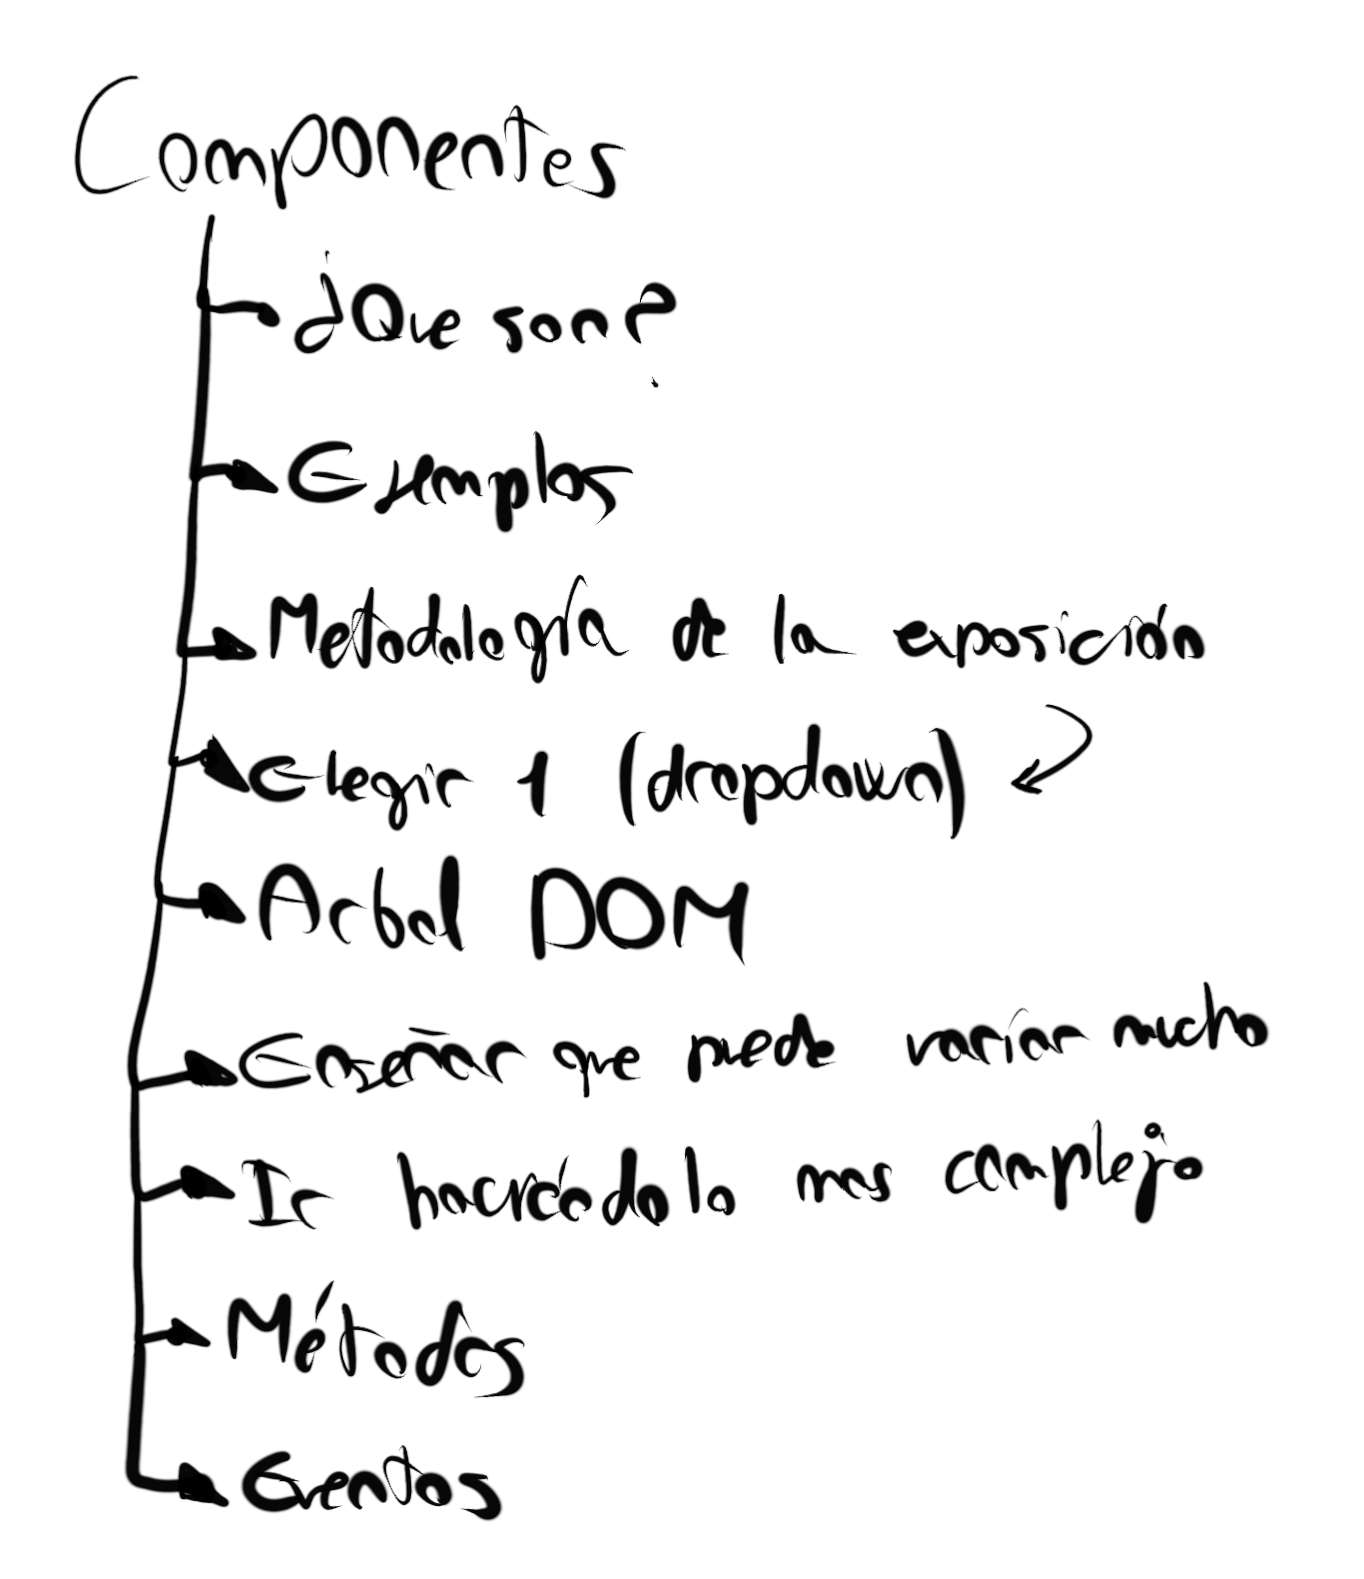 Componentes
¿Que son?
Ejemplos
Metodología de la exposición
Elegir 1 (dropdown)
Arbol DOM
Enseñar que puede variar mucho
Ir haciéndolo mas complejo
Métodos
Eventos